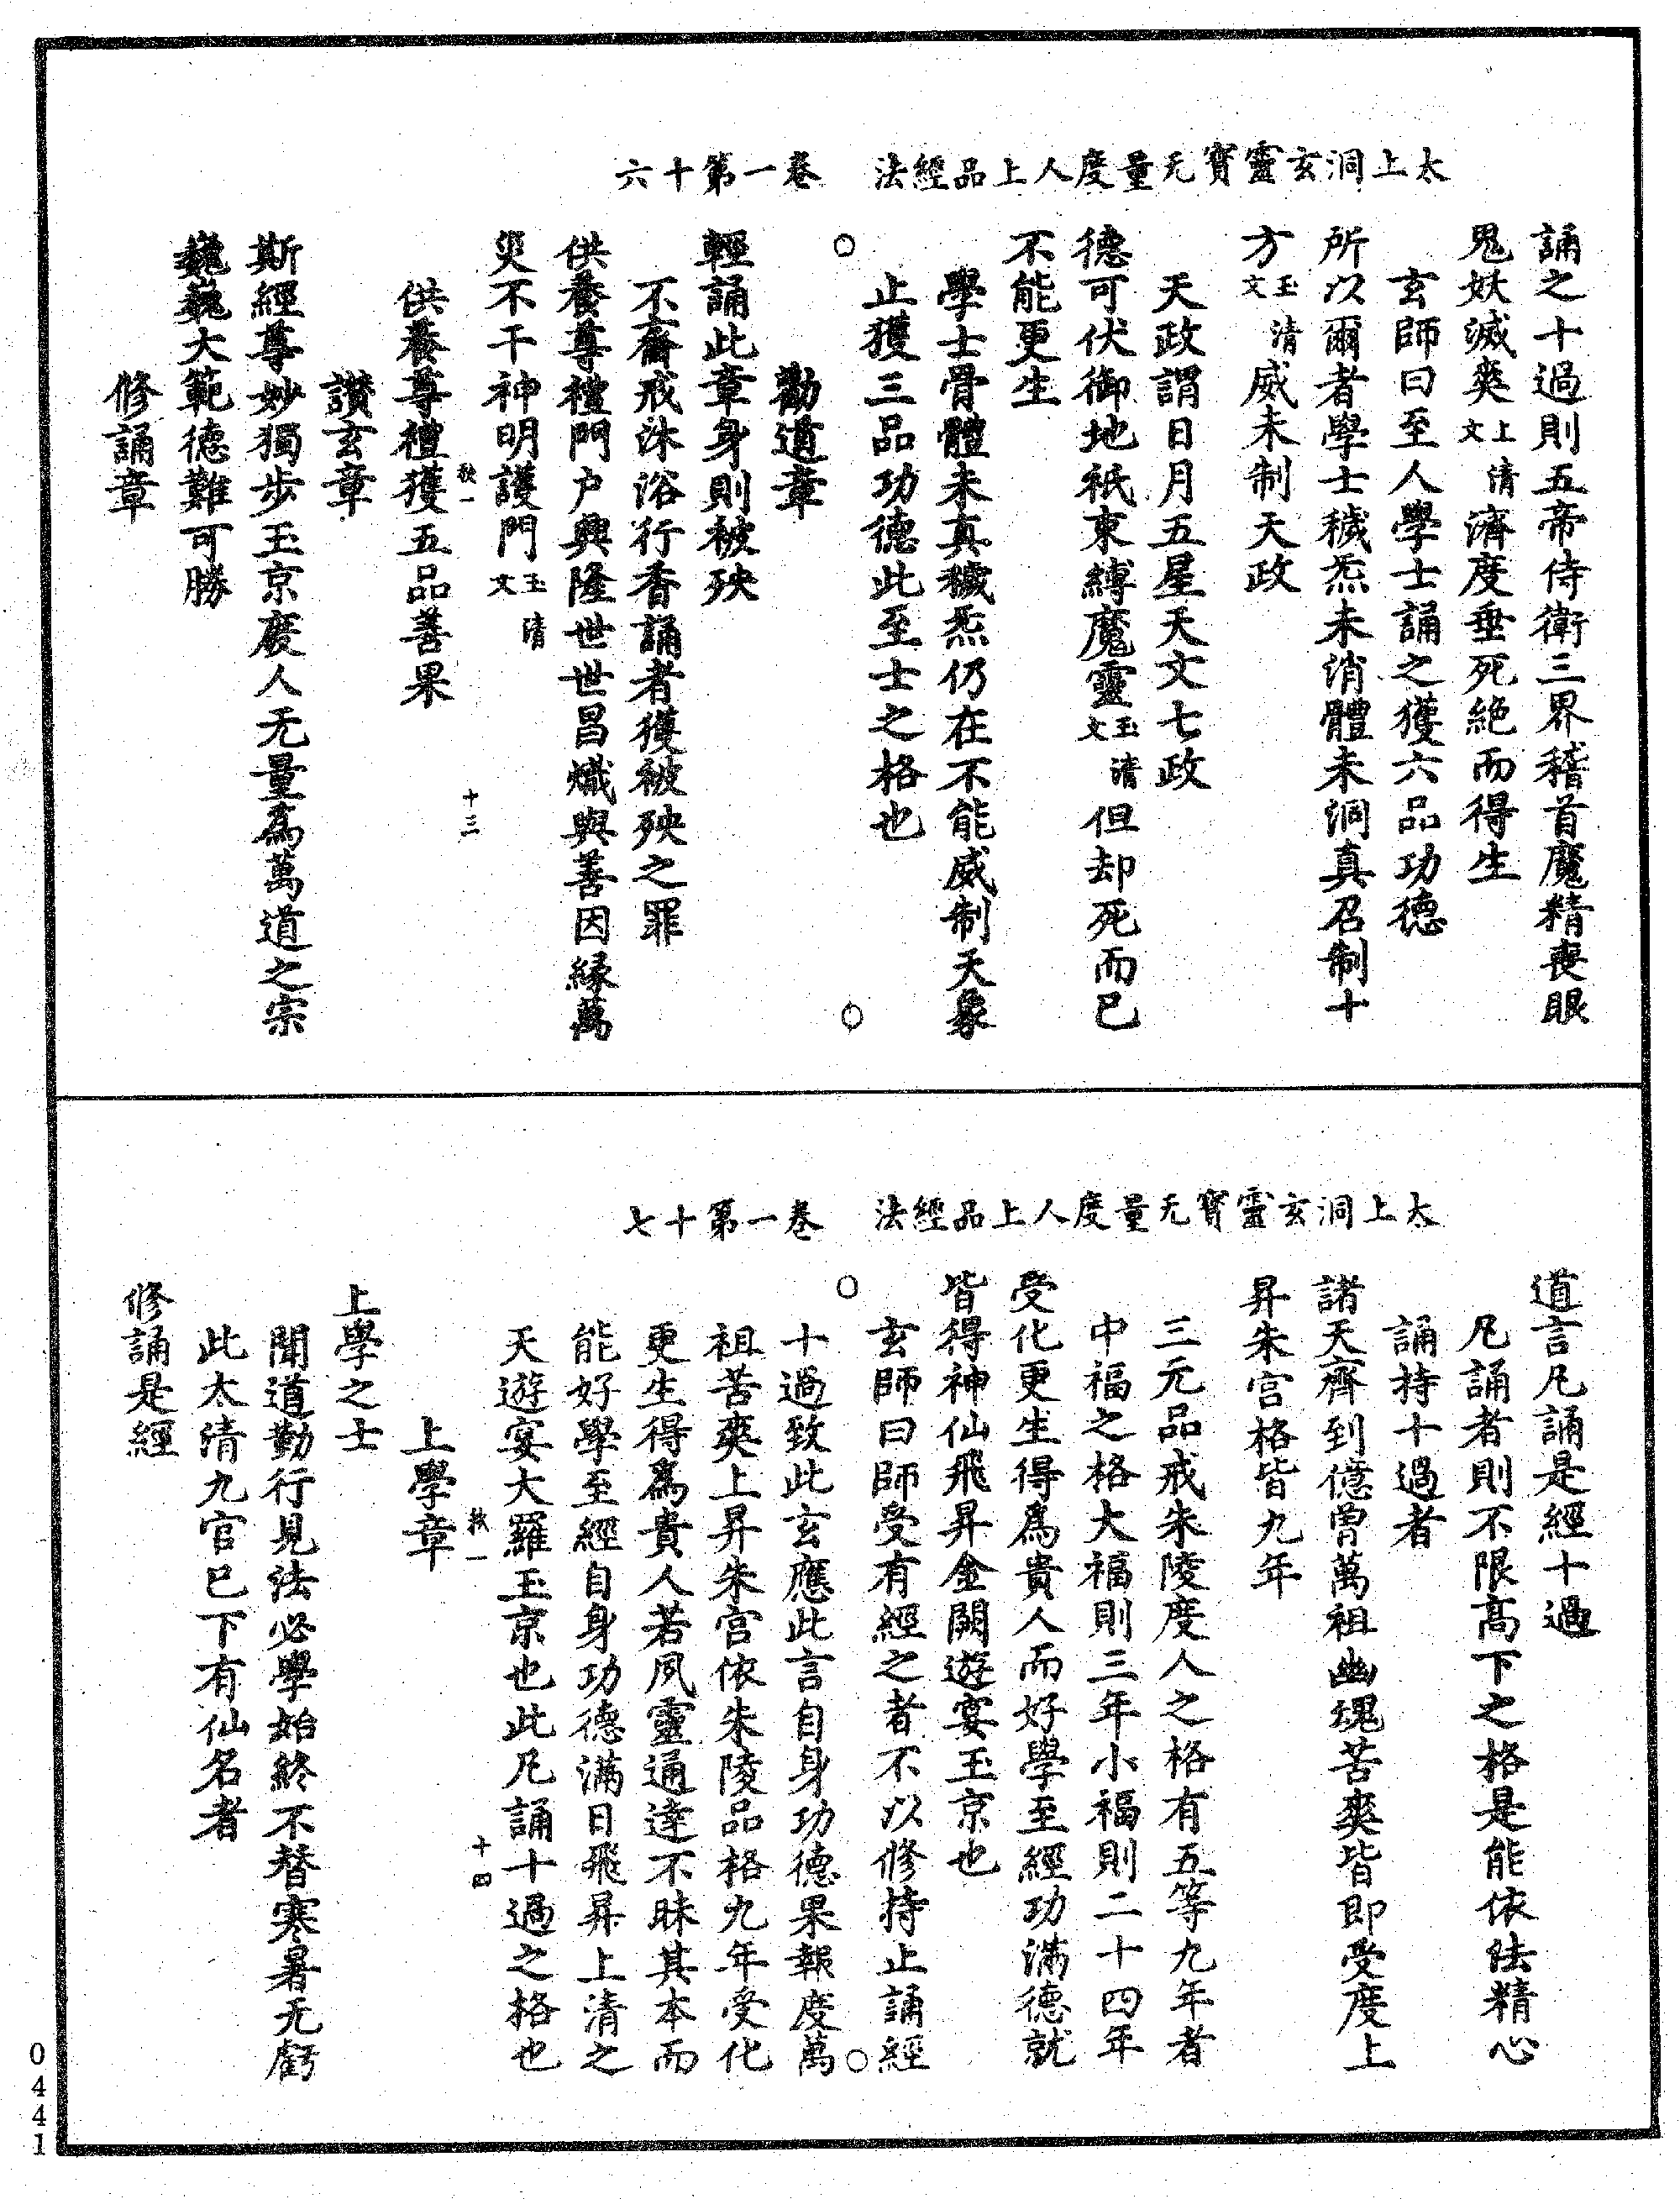 太上洞玄靈寶无量度人上品經法　卷一第十六
誦之十過則五帝侍衛三界稽首魔精喪眼
鬼妖滅爽上清文濟度垂死絶而得生
玄師曰至人學士誦之獲六品功德
所以爾者學士穢炁未消體未洞真召制十
方玉清文威未制天政
天政謂日月五星天文七政
德可伏御地祇束縛魔靈玉清文但却死而已
不能更生
學士骨體未真穢炁仍在不能威制天象
止獲三品功德此至士之格也
勸道章
輕誦此章身則被殃
不齋戒沐浴行香誦者獲被殃之罪
供養尊禮門户興隆世世昌熾與善因縁萬
災不干神明護門玉清文
秋一　十三
供養尊禮獲五品善果
讚玄章
斯經尊妙獨步玉京度人无量爲萬道之宗
巍巍大範德難可勝
修誦章
太上洞玄靈寶无量度人上品經法　卷一第十七
道言凡誦是經十過
凡誦者則不限高下之格是能依法精心
誦持十過者
諸天齊到億曾萬祖幽魂苦爽皆即受度上
昇朱宫格皆九年
三元品戒朱陵度人之格有五等九年者
中福之格大福則三年小福則二十四年
受化更生得爲貴人而好學至經功滿德就
皆得神仙飛昇金闕遊宴玉京也
玄師曰師受有經之者不以修持止誦經
十過致此玄應此言自身功德果報度萬
祖苦爽上昇朱宫依朱陵品格九年受化
更生得爲貴人若夙靈通達不昧其本而
能好學至經自身功德滿日飛昇上清之
天遊宴大羅玉京也此凡誦十過之格也
秋一　十四
上學章
上學之士
聞道勤行見法必學始終不替寒暑无虧
此太清九官已下有仙名者
修誦是經
0441